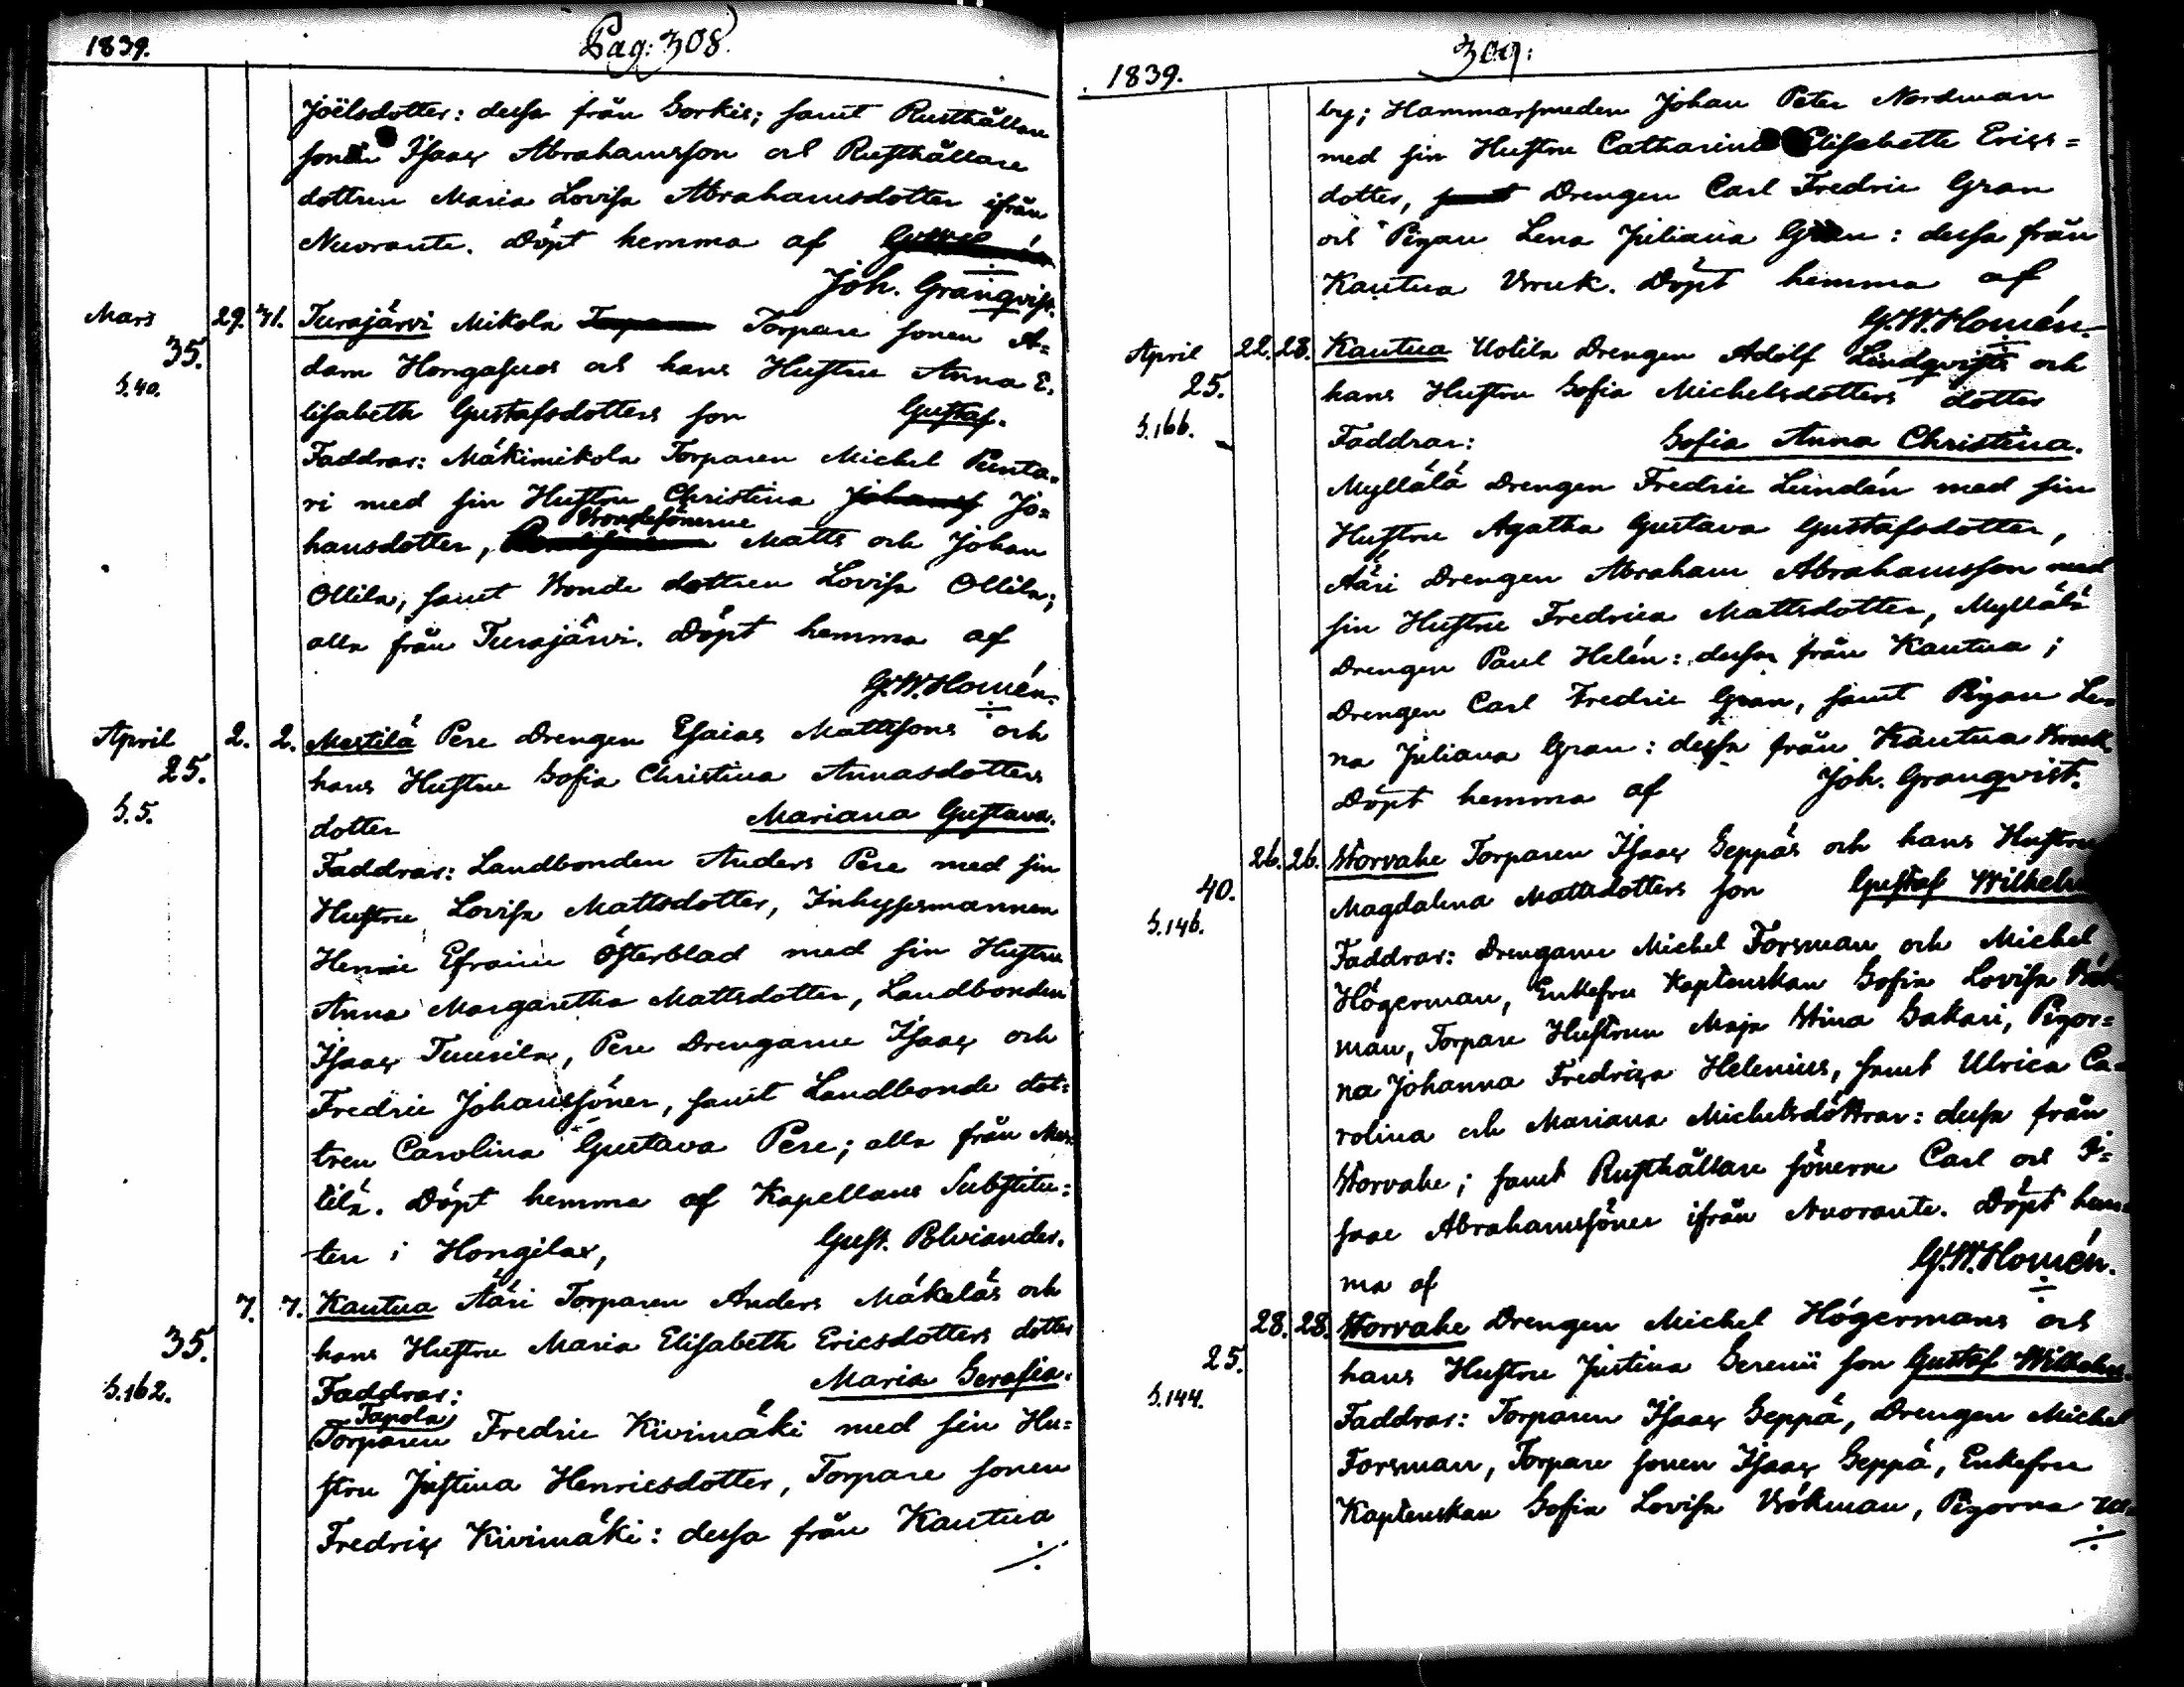 1839.
Pag: 308.
Joëlsdotter: dessa från Sorkis; samt Rusthållare
sonen Isaac Abrahamsson och Rusthållare
dottren Maria Lovisa Abrahamsdotter ifrån
Nuoranti. Döpt hemma af
Joh. Granqvist.
Mars 29. 31. Turajärvi Mikola Torpare sonen A=
35. dam Hongasuos och hans Hustru Anna E.
S.40. lisabeth Gustafsdotters son Gustaf.
Faddrar: Mäkimikola Torparen Michel Punta=
ri med sin Hustru Christina Johans Jo=
Bondesönerne
hansdotter, Matts och Johan
Ollila, samt Bonde dottren Lovisa Ollila;
alla från Turajärvi. Döpt hemma af
G.W. Homén.
April 2. 2. Mestilä Pere Drengen Esaias Mattssons och
25. hans Hustru Sofia Christina Annasdotters
S.5. dotter Mariana Gustava.
Faddrar: Landbonden Anders Pere med sin
Hustru Lovisa Mattsdotter, Inhysesmannen
Henric Efraim Österblad med sin Hustru
Anna Margaretha Mattsdotter, Landbonden
Isaac Tuurila, Pere Drengarne Isaac och
Fredric Johanssöner, samt Landbonde dot=
tren Carolina Gustava Pere; alla från Mes=
tilä. Döpt hemma af Kapellans Substitu=
ten i Hongilax, Gust. Polviander.
7. 7. Kautua Ääri Torparen Anders Mäkeläs och
35. hans Hustru Maria Elisabeth Ericsdotters dotter
S.162. Faddrar: Maria Serafia.
Tapola
Torparen Fredric Kivimäki med sin Hu=
stru Justina Henricsdotter, Torpare sonen
Fredric Kivimäki: dessa från Kautua
./.
1839.
309:
by; Hammarsmeden Johan Peter Nordman
med sin Hustru Catharina Elisabeth Erics=
dotter, samt Drengen Carl Fredric Gran
och Pigan Lena Juliana Gran: dessa från
Kautua Bruk. Döpt hemma af
G.W. Homén.
April 22. 28. Kautua Uotila Drengen Adolf Lindqvists och
25. hans Hustru Sofia Michelsdotters dotter
S.166. Faddrar: Sofia Anna Christina.
Myllälä Drengen Fredric Lundán med sin
Hustru Agatha Gustava Gustafsdotter,
Ääri Drengen Abraham Abrahamsson med
sin Hustru Fredrica Mattsdotter, Myllälä
Drengen Paul Helén: dessa från Kautua;
Drengen Carl Fredric Gran, samt Pigan Le=
na Juliana Gran: dessa från Kautua Bruk.
Döpt hemma af Joh. Granqvist.
26. 26. Worvahe Torparen Isaac Seppäs och hans Hustru
40. Magdalena Mattsdotters son Gustaf Wilhelm
S.146. Faddrar: Drengarne Michel Forsman och Michel
Högerman, Enkefru Kaptenskan Sofia Lovisa Bök=
man, Torpare Hustrun Maja Stina Sakari, Pigor=
na Johanna Fredrica Helenius, samt Ulrica Ca=
rolina och Mariana Michelsdöttrar: dessa från
Worvahe; samt Rusthållare sönerne Carl och I=
saac Abrahamssöner ifrån Nuoranti. Döpt hem=
ma af G.W. Homén.
28. 28. Worvahe Drengen Michel Högermans och
25. hans Hustru Justina Serenii son Gustaf Wilhelm.
S.144. Faddrar: Torparen Isaac Seppä, Drengen Michel
Forsman, Torpare sonen Isaac Seppä, Enkefru
Kaptenskan Sofia Lovisa Bökman, Pigorna Ul=
./.